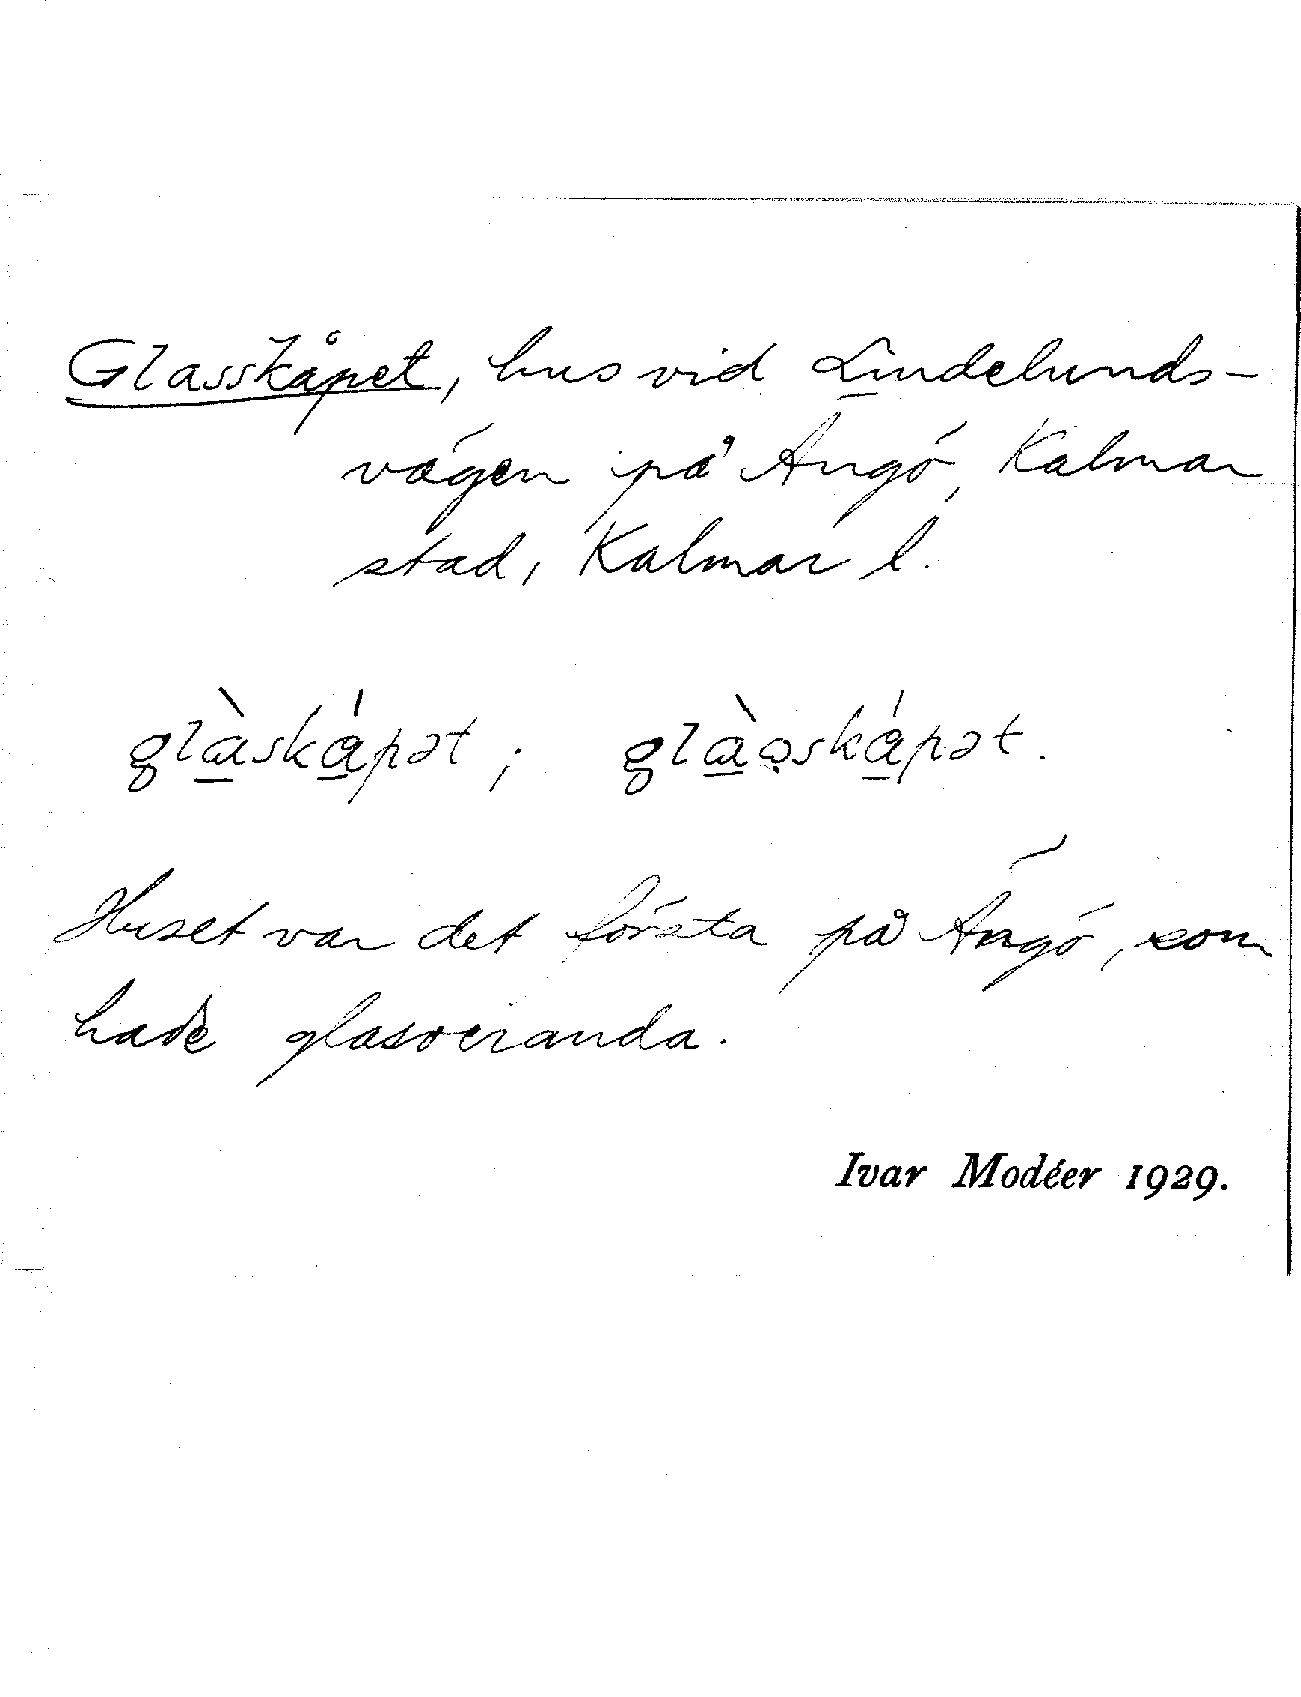 Glasskåpet, hus vid Lindelunds-
vägen på Ängö, Kalmar
stad, Kalmar l.
glàskápət; glàǫskápət.
Huset var det första på Ängö, som
hade glasveranda.
Ivar Modéer 1929.